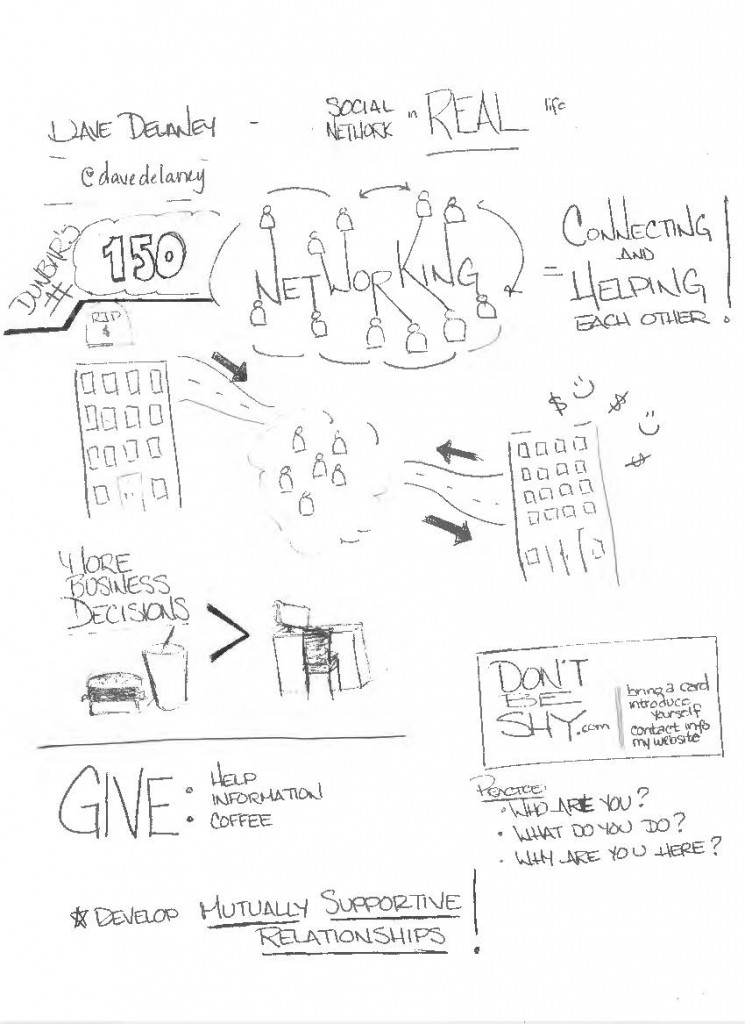 DAVE DELANEY -
SOCIAL NETWORK in REAL life
@davedelaney
DUNBAR'S #
150
NETWORKING
= CONNECTING
AND
HELPING
EACH OTHER!
RIP
$
$
$
$
MORE
BUSINESS
DECISIONS
>
DON'T
BE
SHY.com
bring a card
introduce
yourself
contact info
my website
GIVE:
• HELP
INFORMATION
• COFFEE
PRACTICE:
• WHO ARE YOU?
• WHAT DO YOU DO?
• WHY ARE YOU HERE?
☆ DEVELOP MUTUALLY SUPPORTIVE
RELATIONSHIPS!